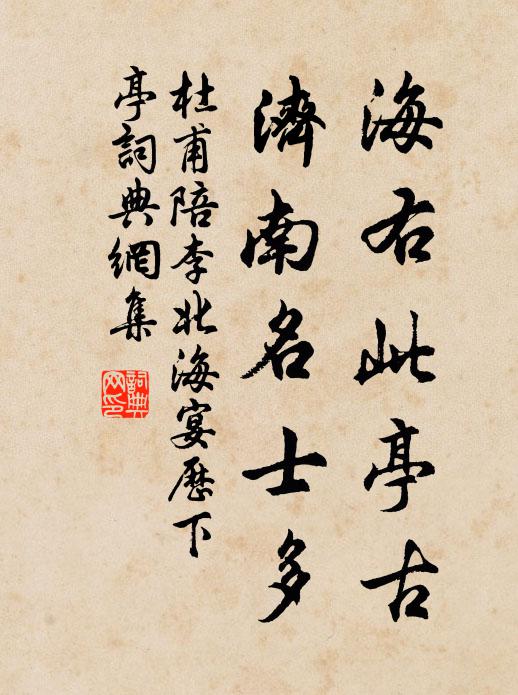 海右此亭古
濟南名士多
杜甫陪李北海宴歷下
亭詞典網集
詞典
网印